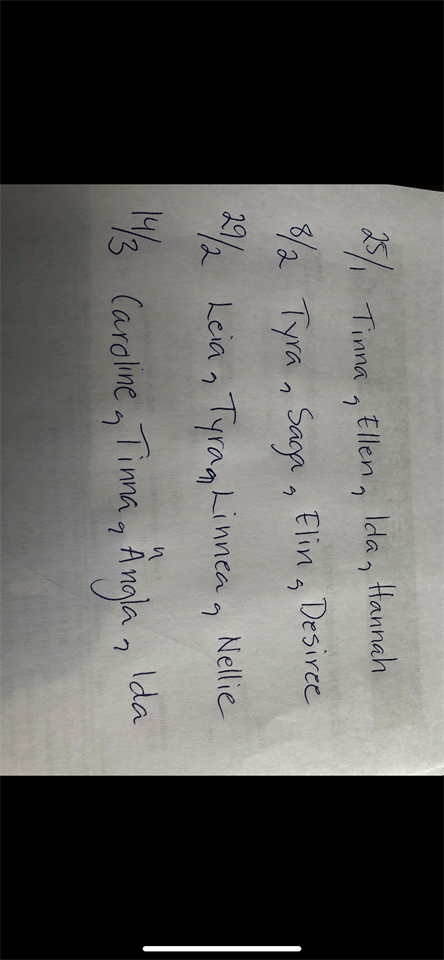 25/1 Tinna, Ellen, Ida, Hannah
8/2 Tyra, Saga, Elin, Desiree
29/2 Leia, Tyra, Linnea, Nellie
14/3 Caroline, Tinna, Ängla, Ida